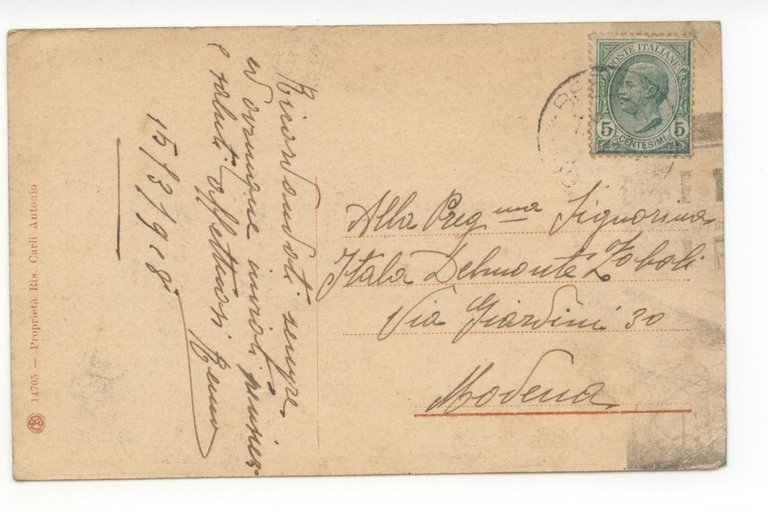 Ricordandoti sempre
ed ovunque invioti
e saluti affettuosi
Remo
15/3/918
Alla Preg.ma Signorina
Itala Delmonte Zoboli
Via Giardini 30
Modena
POSTE ITALIANE
5 5
CENTESIMI
14705 — Proprietà Ris. Carli Antonio